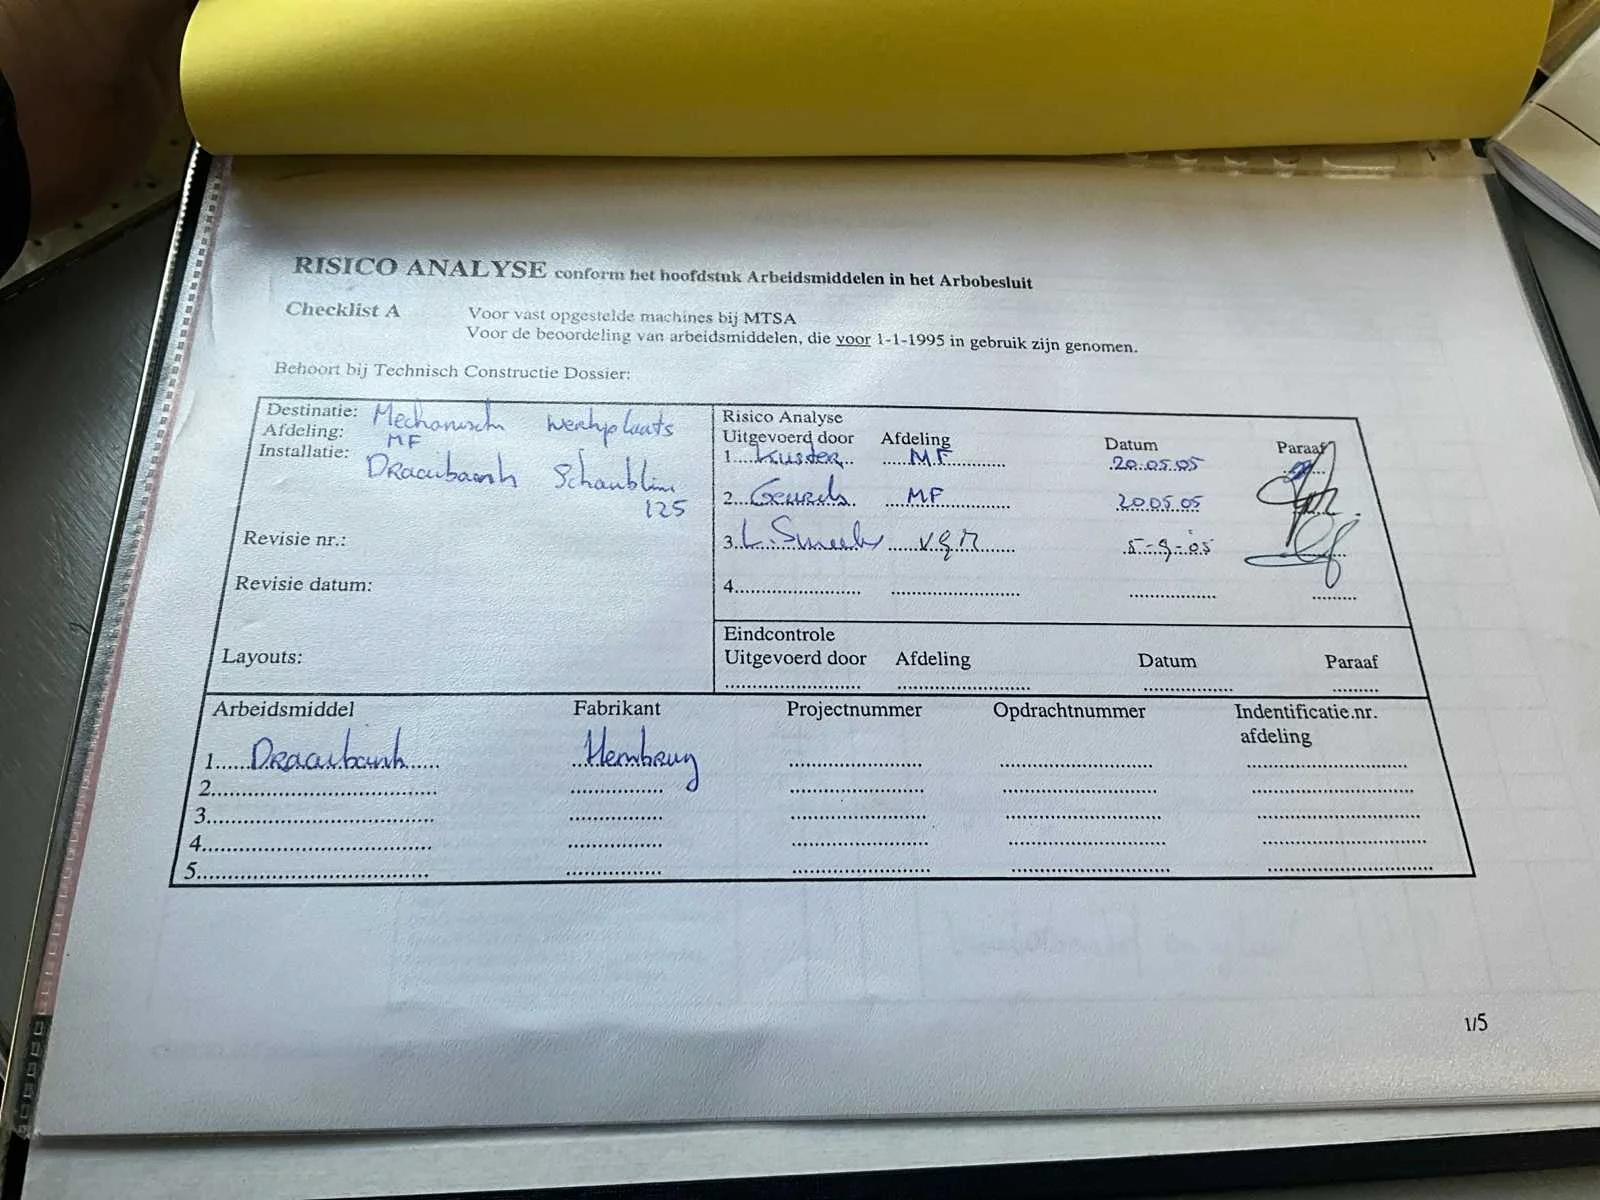 RISICO ANALYSE conform het hoofdstuk Arbeidsmiddelen in het Arbobesluit
Checklist A Voor vast opgestelde machines bij MTSA
Voor de beoordeling van arbeidsmiddelen, die voor 1-1-1995 in gebruik zijn genomen.
Behoort bij Technisch Constructie Dossier:
Destinatie: Mechanisch werkplaats
Afdeling: MF
Installatie: Draaibank Schaublin
125
Revisie nr.:
Revisie datum:
Layouts:
Risico Analyse
Uitgevoerd door Afdeling Datum Paraaf
1. Kuster MF 20.05.05
2. MF 20.05.05
3. L. VGM 5-9-05
4.
Eindcontrole
Uitgevoerd door Afdeling Datum Paraaf
Arbeidsmiddel Fabrikant Projectnummer Opdrachtnummer Indentificatie.nr.
afdeling
1. Draaibank Hembrug
2.
3.
4.
5.
1/5